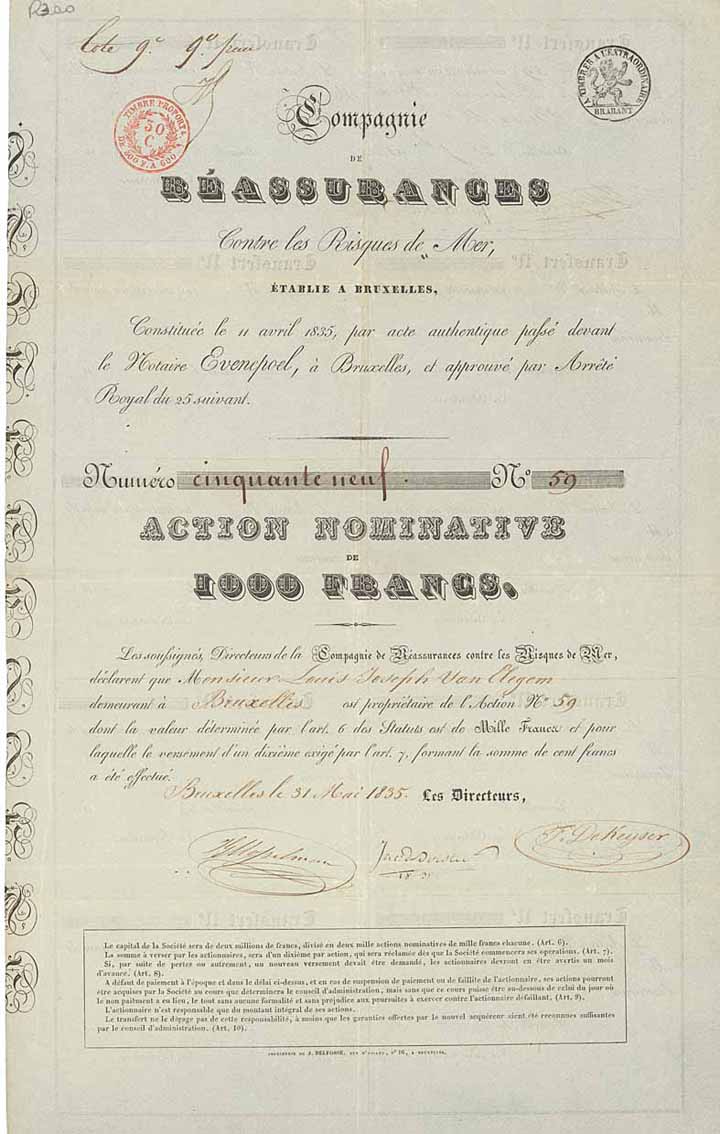 Cote 9e
TIMBRE PROPORT.
50
C.
DE 500 F. A 600
A TIMBRER A L'EXTRAORDINAIRE
BRABANT
Compagnie
DE
RÉASSURANCES
Contre les Risques de Mer,
ÉTABLIE A BRUXELLES,
Constituée le 11 avril 1835, par acte authentique passé devant
le Notaire Evenepoel, à Bruxelles, et approuvé par Arrêté
Royal du 25 suivant.
Numéro cinquante neuf. No 59
ACTION NOMINATIVE
DE
1000 FRANCS.
Les soussignés, Directeurs de la Compagnie de Réassurances contre les Risques de Mer,
déclarent que Monsieur Louis Joseph Van Clegem
demeurant à Bruxelles est propriétaire de l'Action No 59
dont la valeur déterminée par l'art. 6 des Statuts est de Mille Francs et pour
laquelle le versement d'un dixième exigé par l'art. 7, formant la somme de cent francs
a été effectué.
Bruxelles le 31 Mai 1835. Les Directeurs,
F. DeKeyser
Le capital de la Société sera de deux millions de francs, divisé en deux mille actions nominatives de mille francs chacune. (Art. 6).
La somme à verser par les actionnaires, sera d'un dixième par action, qui sera réclamée dès que la Société commencera ses opérations. (Art. 7).
Si, par suite de pertes ou autrement, un nouveau versement devait être demandé, les actionnaires devront en être avertis un mois
d'avance. (Art. 8).
A défaut de paiement à l'époque et dans le délai ci-dessus, et en cas de suspension de paiement ou de faillite de l'actionnaire, ses actions pourront
être acquises par la Société au cours que déterminera le conseil d'administration, mais sans que ce cours puisse être au-dessous de celui du jour où
le non paiement a eu lieu, le tout sans aucune formalité et sans préjudice aux poursuites à exercer contre l'actionnaire défaillant. (Art. 9).
L'actionnaire n'est responsable que du montant intégral de ses actions.
Le transfert ne le dégage pas de cette responsabilité, à moins que les garanties offertes par le nouvel acquéreur aient été reconnues suffisantes
par le conseil d'administration. (Art. 10).
IMPRIMERIE DE J. DELFOSSE, No 16, A BRUXELLES.